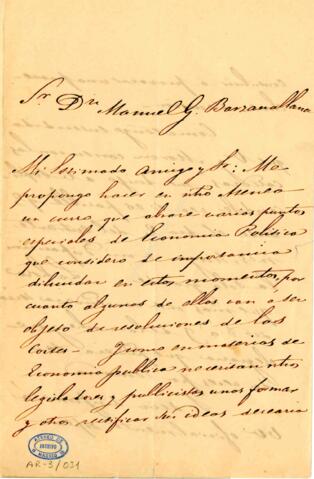 Sr. Dn. Manuel G. Barzanallana
Mi estimado amigo y Sr: Me
propongo hacer en ntro Ateneo
un curso, que abrace varios puntos
especiales de Economia Politica
que considero de importancia
dilucidar en estos momentos, por
cuanto algunos de ellos van a ser
objeto de resoluciones de las
Cortes. Y como en materias de
Economia publica necesitan ntros
legisladores y publicistas unos formar
y otros rectificar sus ideas desearia
ATENEO DE
ARCHIVO
MADRID
AR-3/031